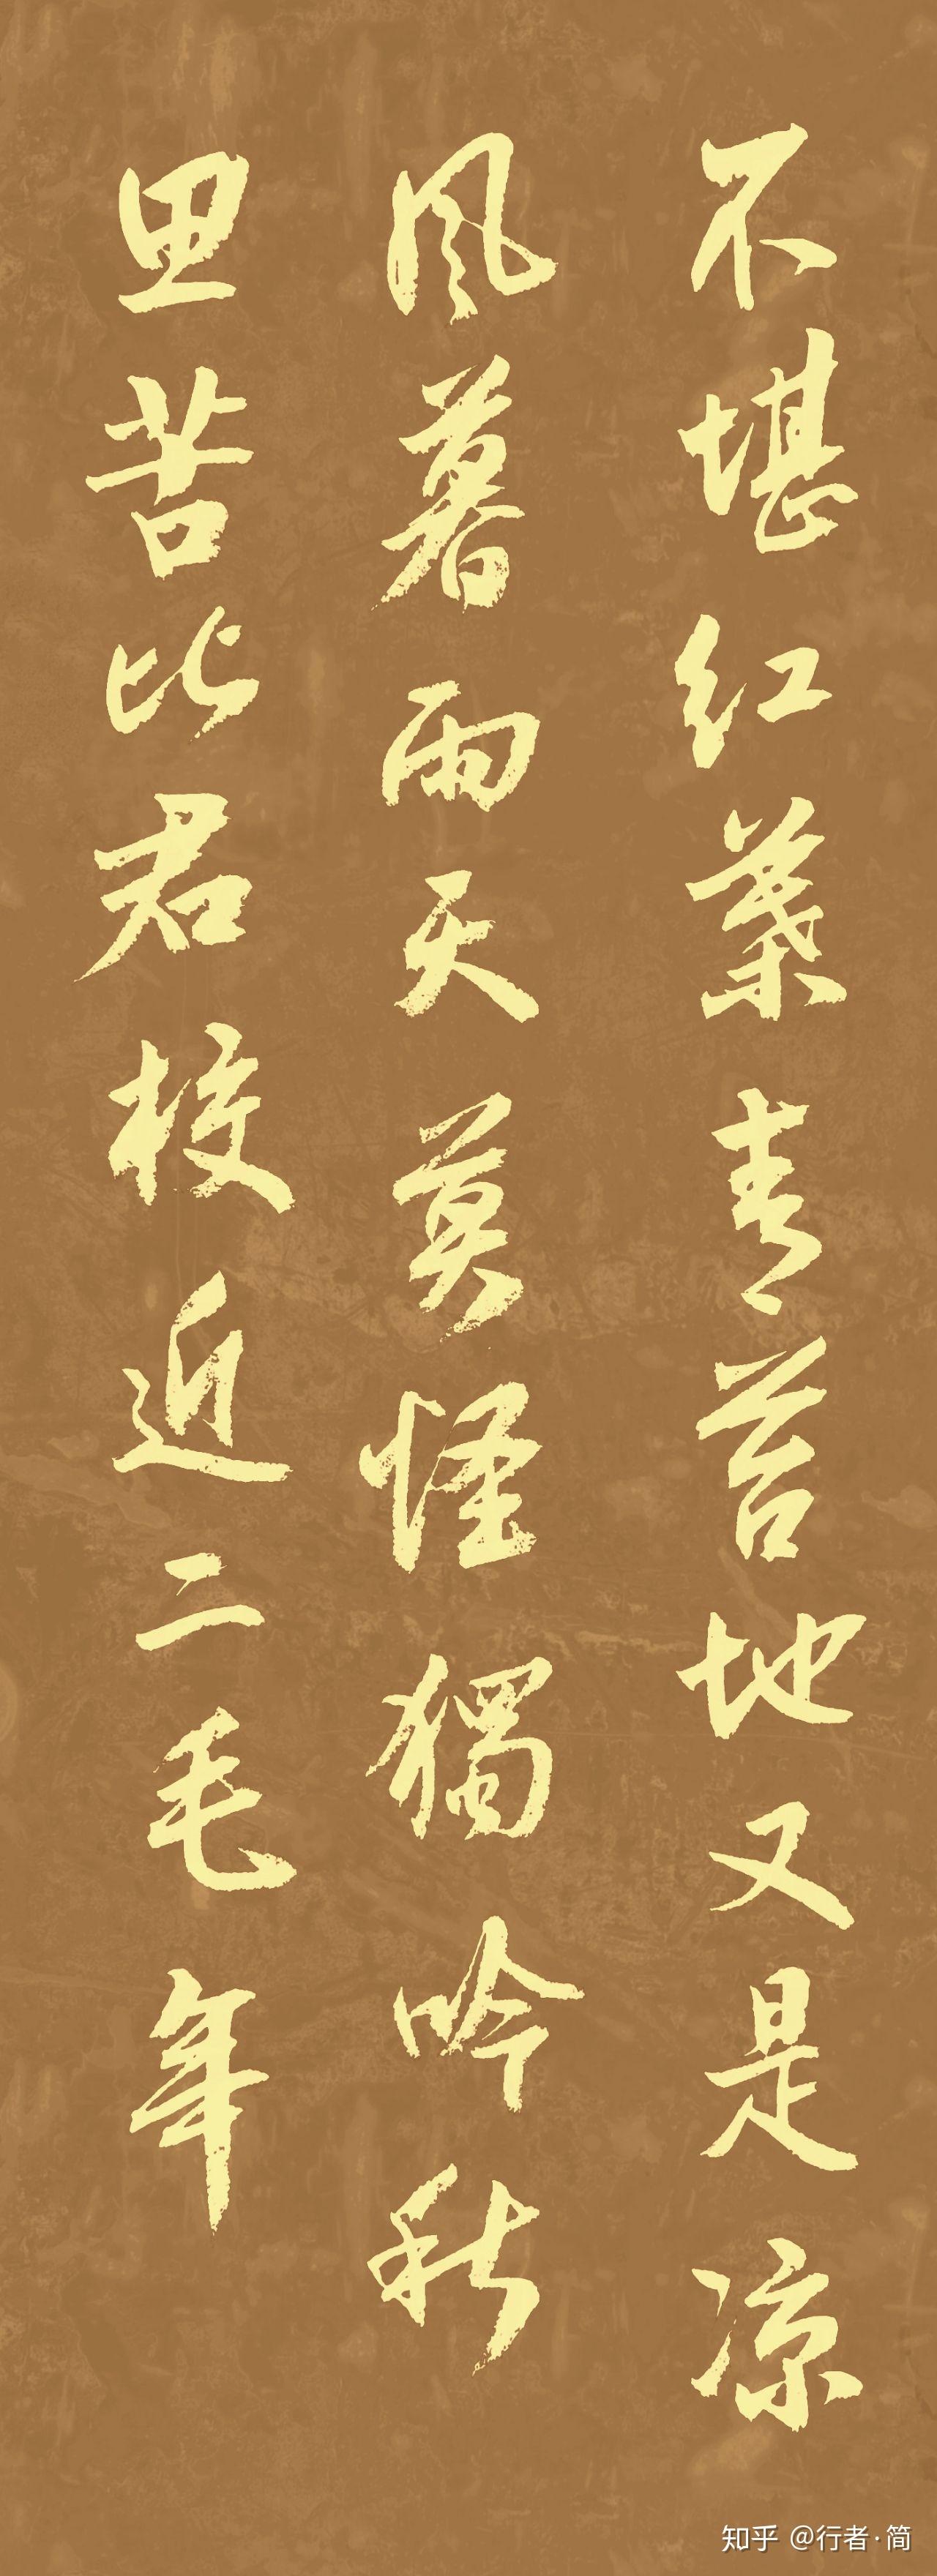 不堪红葉青苔地又是凉
風暮雨天莫怪獨吟秋
思苦比君校近二毛年
知乎 @行者·简